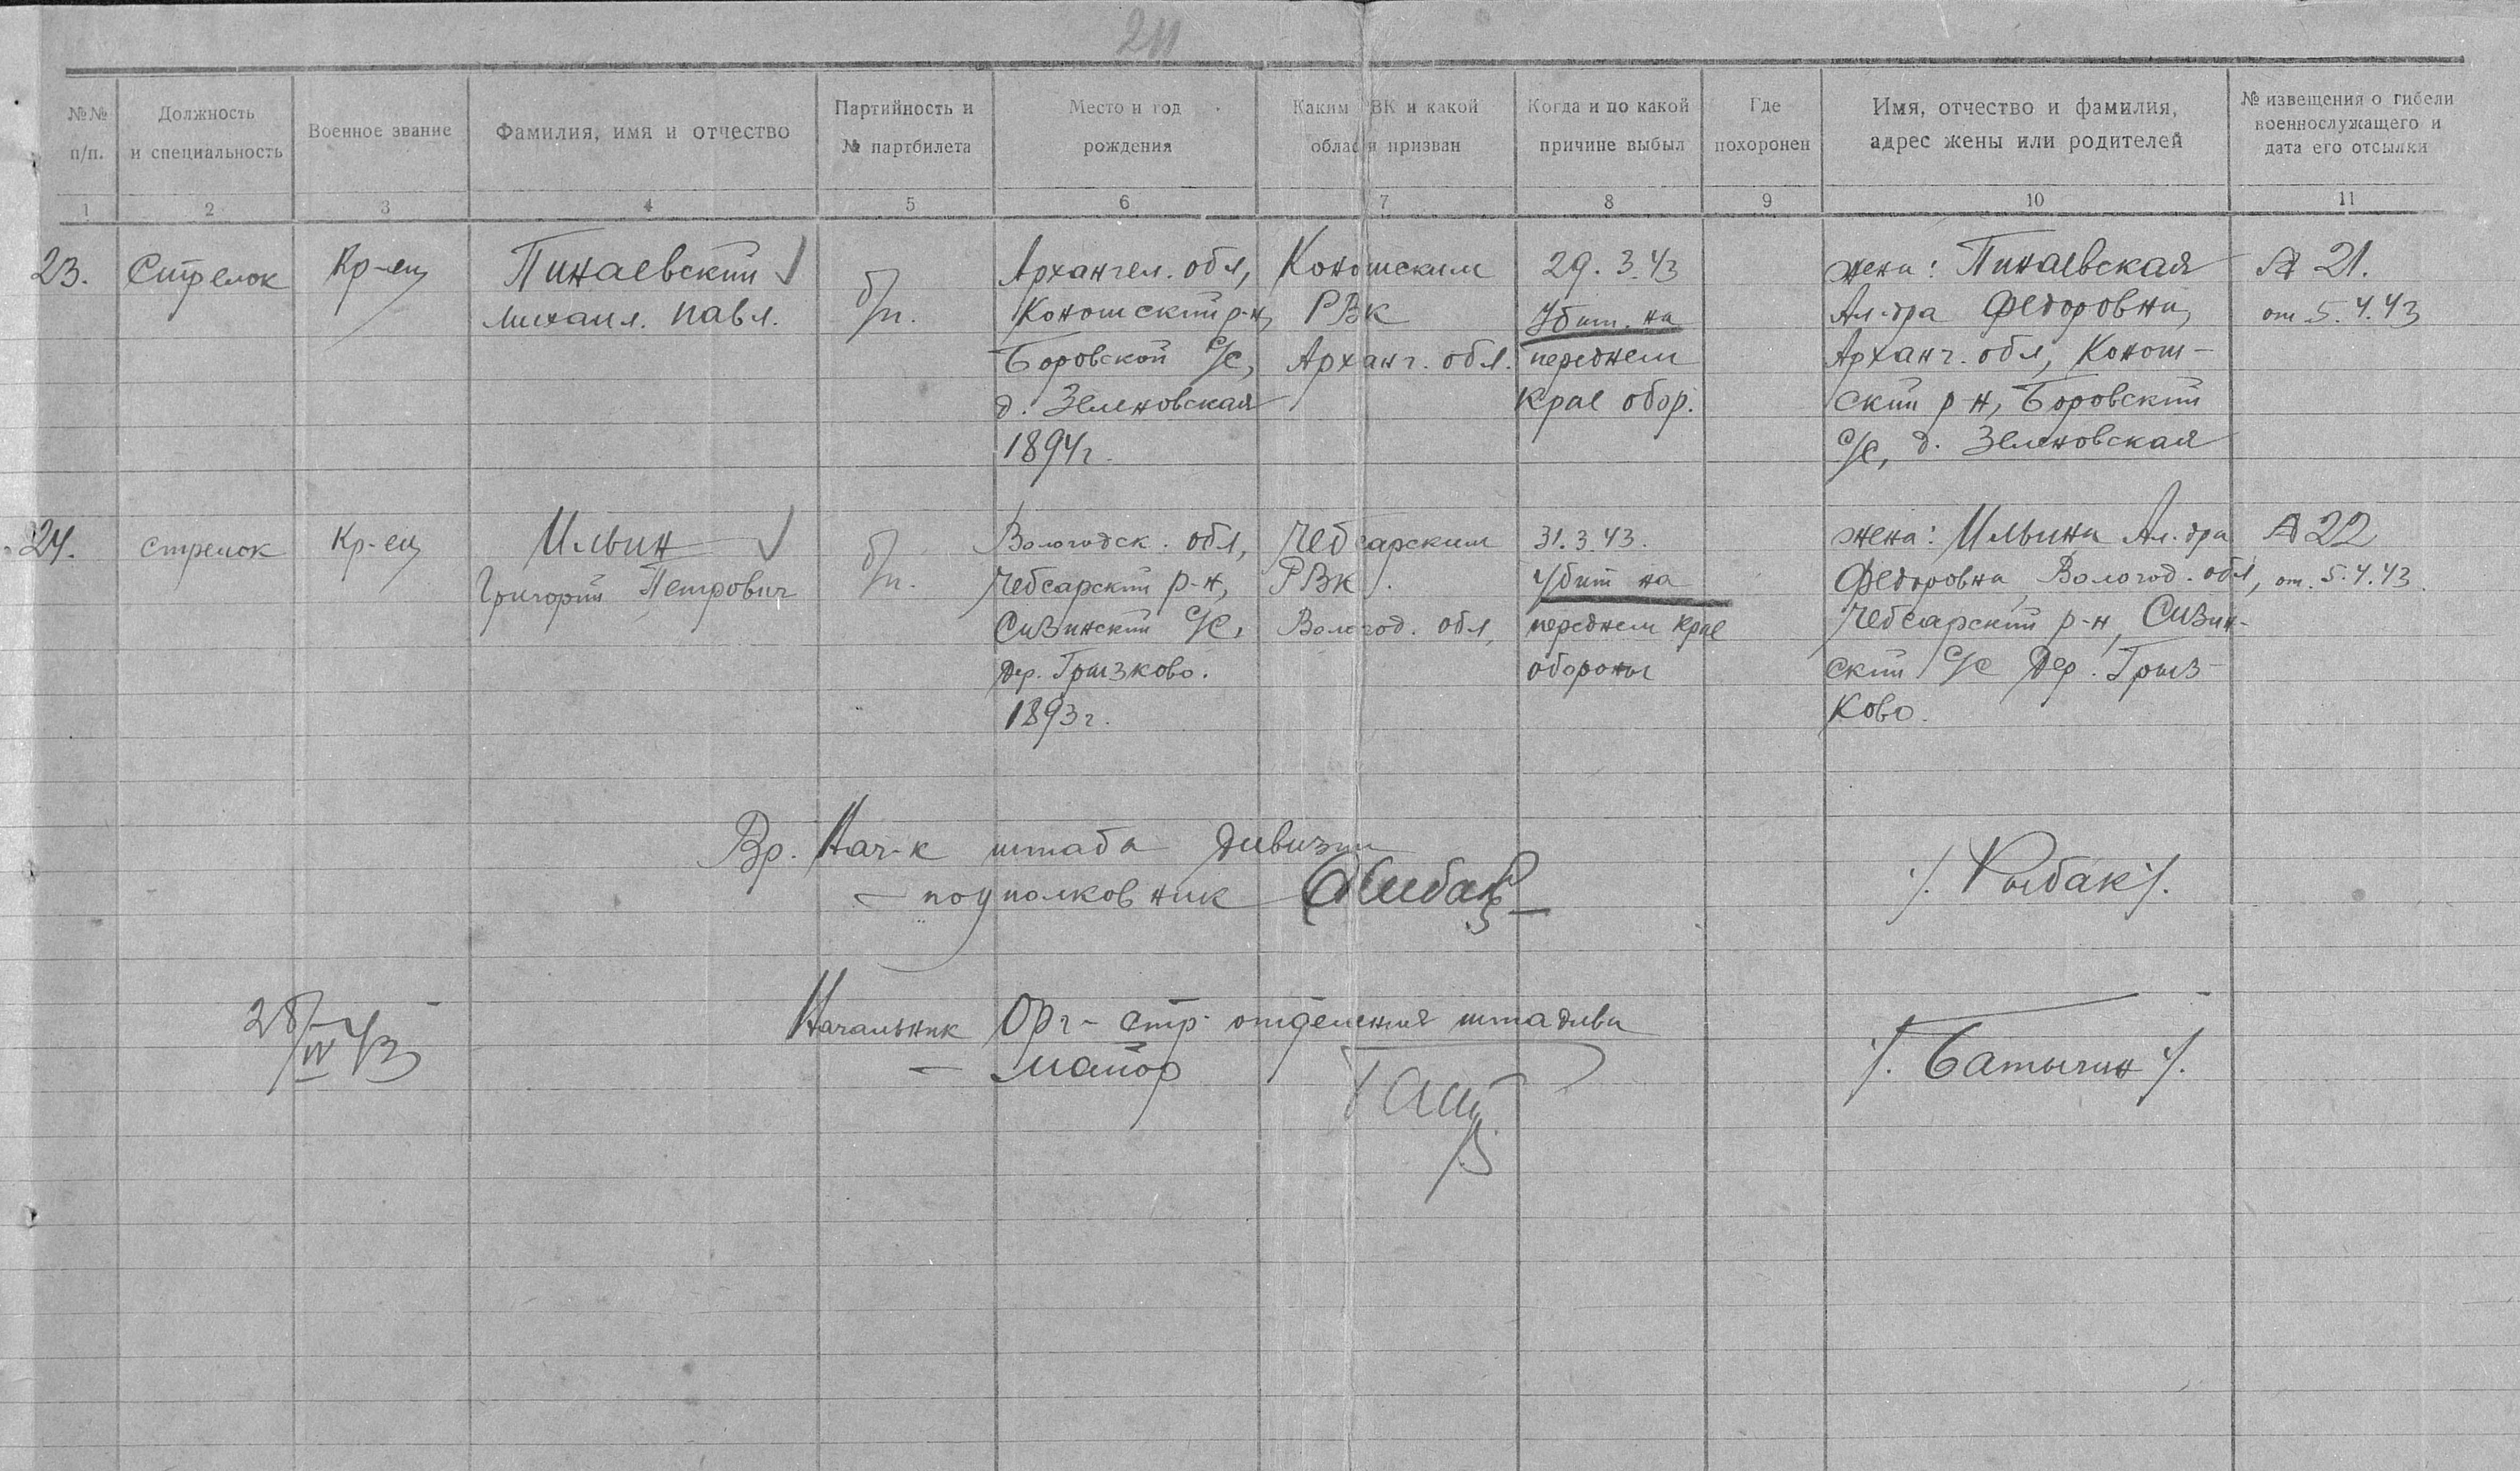 211
№№ п/п.
Должность и специальность
Военное звание
Фамилия, имя и отчество
Партийность и № партбилета
Место и год рождения
Каким РВК и какой области призван
Когда и по какой причине выбыл
Где похоронен
Имя, отчество и фамилия, адрес жены или родителей
№ извещения о гибели военнослужащего и дата его отсылки
1 2 3 4 5 6 7 8 9 10 11
23.
Стрелок
Кр-ец
Пинаевский
Михаил. Павл.
б/п.
Архангел. обл,
Коношский р-н,
Боровской С/с,
д. Зеленовская
1894г.
Коношским
РВК
Арханг. обл.
29.3.43
Убит. на
переднем
крае обор.
жена: Пинаевская
Ал-дра Федоровна,
Арханг. обл, Конош-
ский р-н, Боровский
С/с, д. Зеленовская
№ 21.
от 5.4.43
24.
стрелок
Кр-ец
Ильин
Григорий Петрович
б/п.
Вологодск. обл,
Чебсарский р-н,
Сизинский С/с,
Дер. Грызково.
1893г.
Чебсарским
РВК.
Вологод. обл,
31.3.43.
Убит на
переднем крае
обороны
жена: Ильина Ал-дра
Федоровна, Вологод. обл,
Чебсарский р-н, Сизин-
ский С/с Дер. Грыз-
ково.
№ 22
от. 5.4.43.
Вр. Нач-к штаба дивизии
— подполковник
/. Рыбак/.
Начальник Орг-стр. отделения штадива
— майор
/. Батычин/.
28/IV 43